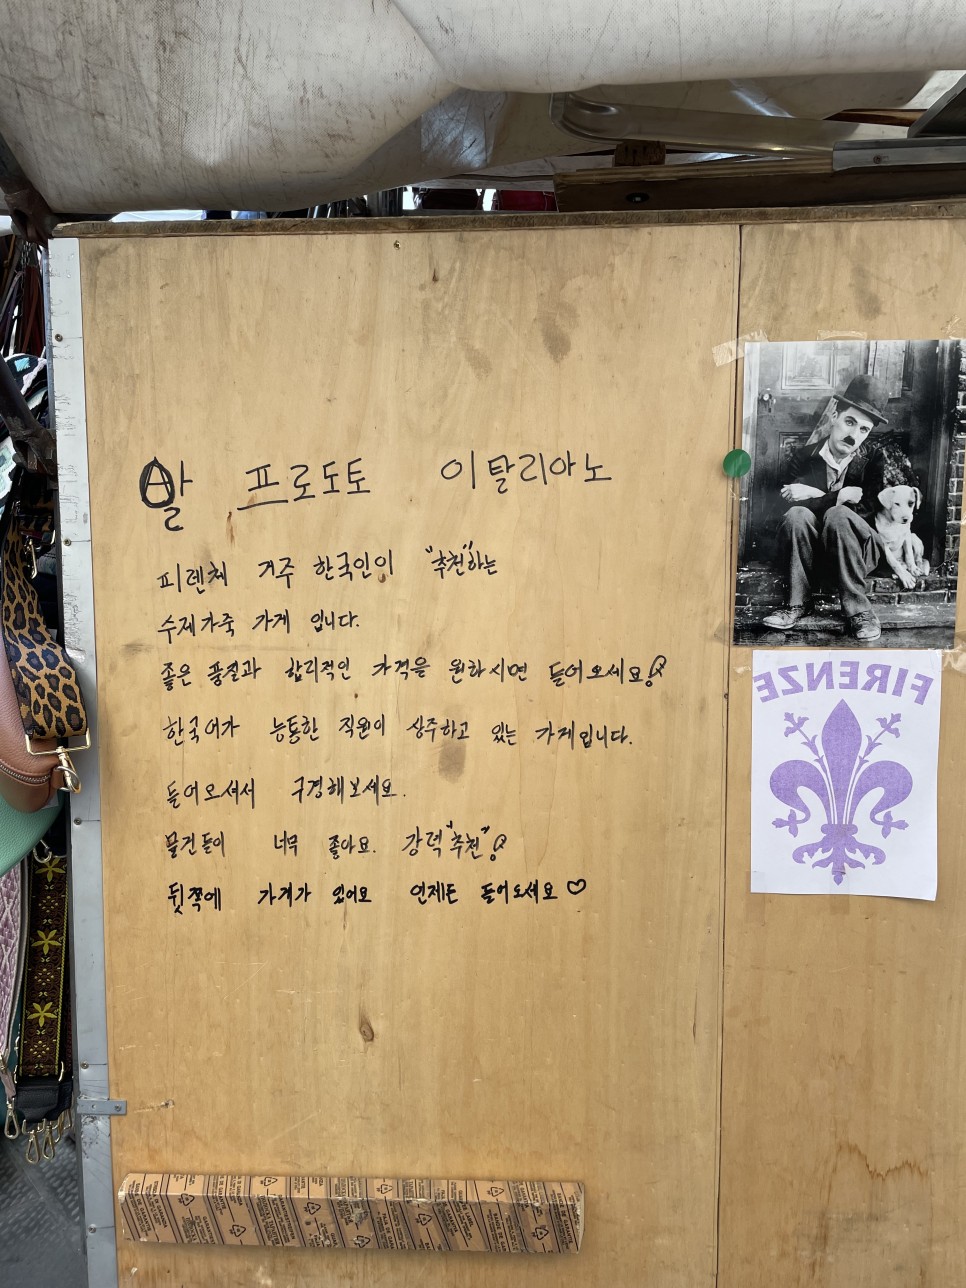 알 프로도토 이탈리아노
피렌체 거주 한국인이 "추천"하는
수제가죽 가게 입니다.
좋은 품질과 합리적인 가격을 원하시면 들어오세요!
한국어가 능통한 직원이 상주하고 있는 가게입니다.
들어오셔서 구경해보세요.
물건들이 너무 좋아요. 강력"추천"!
뒷쪽에 가게가 있어요 언제든 들어오세요♡
FIRENZE